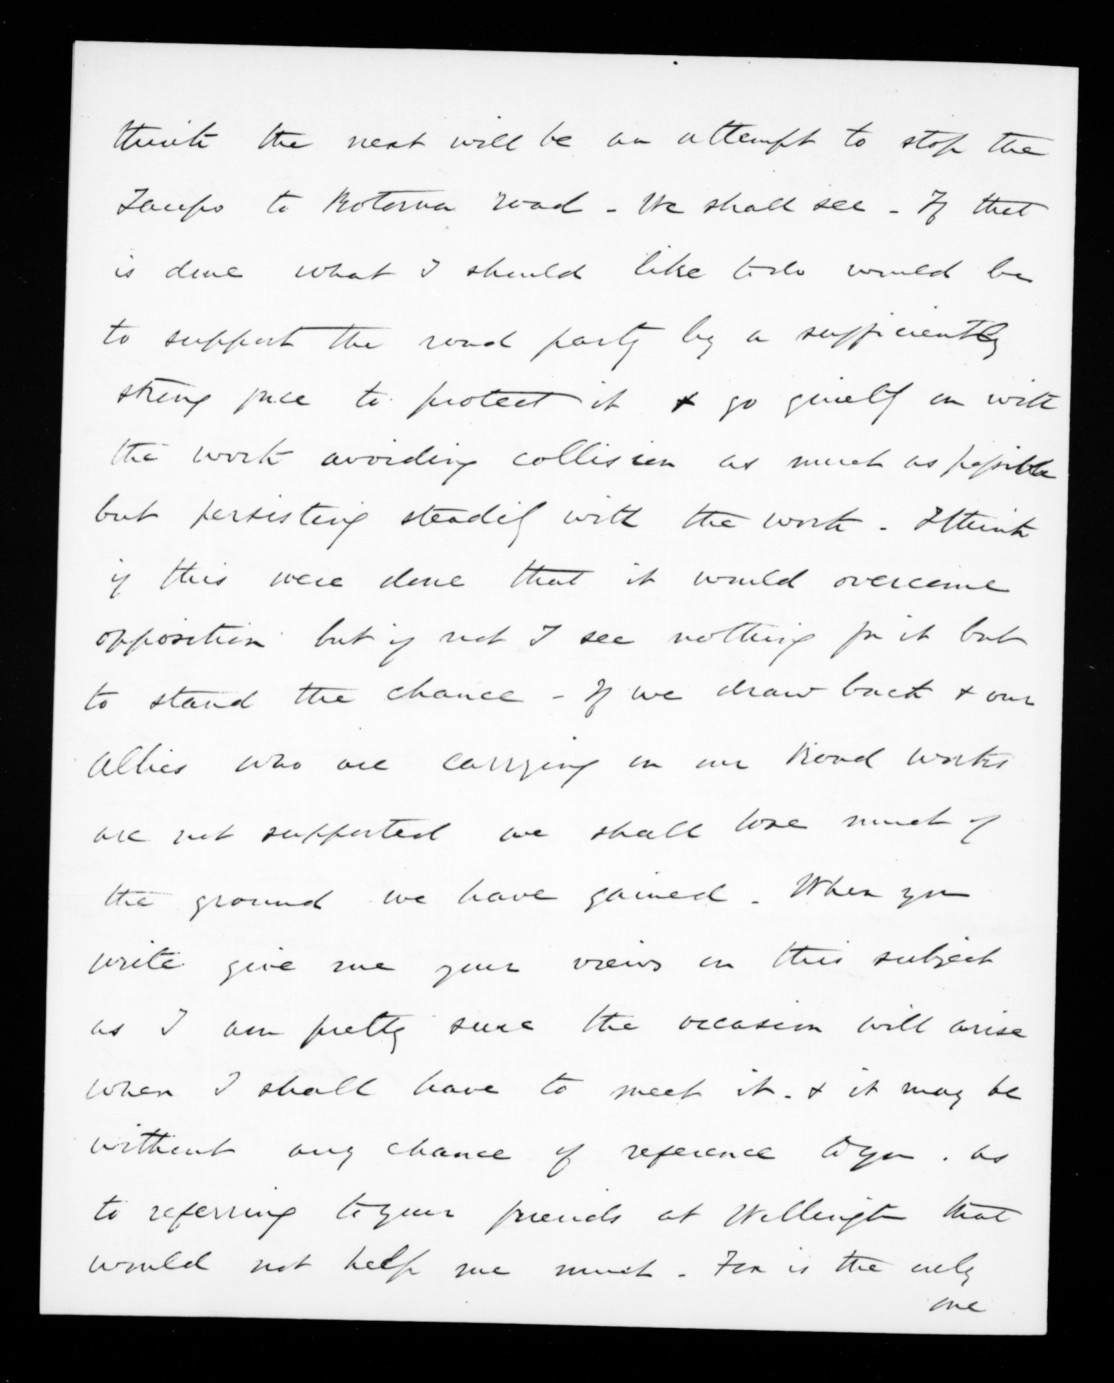 think the next will be an attempt to stop the
Taupo to Rotorua road - We shall see - If that
is done what I should like to do would be
to support the road party by a sufficiently
strong force to protect it & go quietly on with
the work avoiding collision as much as possible
but persisting steadily with the work - I think
if this were done that it would overcome
opposition but if not I see nothing for it but
to stand the chance - If we draw back & our
Allies who are carrying on our Road works
are not supported we shall lose much of
the ground we have gained - When you
write give me your views on this subject
as I am pretty sure the occasion will arise
when I shall have to meet it. & it may be
without any chance of reference to you. as
to referring to your friends at Wellington that
would not help me much - Fox is the only
one